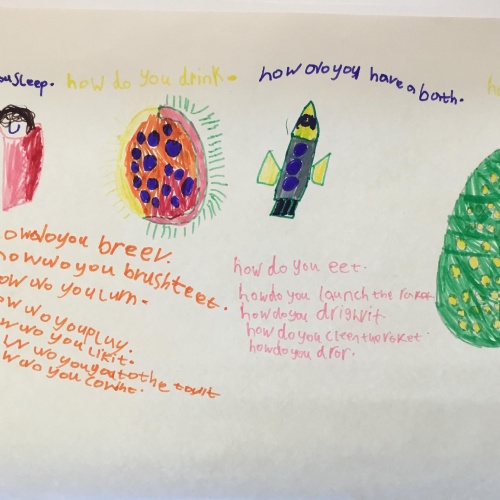 ousleep.
how do you drink.
how do you have a bath.
ho
howdoyou breev.
how wo you brushteet.
how wo you lurn.
how wo youplay.
how wo you likit.
wo yougoto the
w wo you cownt.
how do you eet.
how do you launch the
how do you drighvit.
how do you cleen the roket
how do you dror.